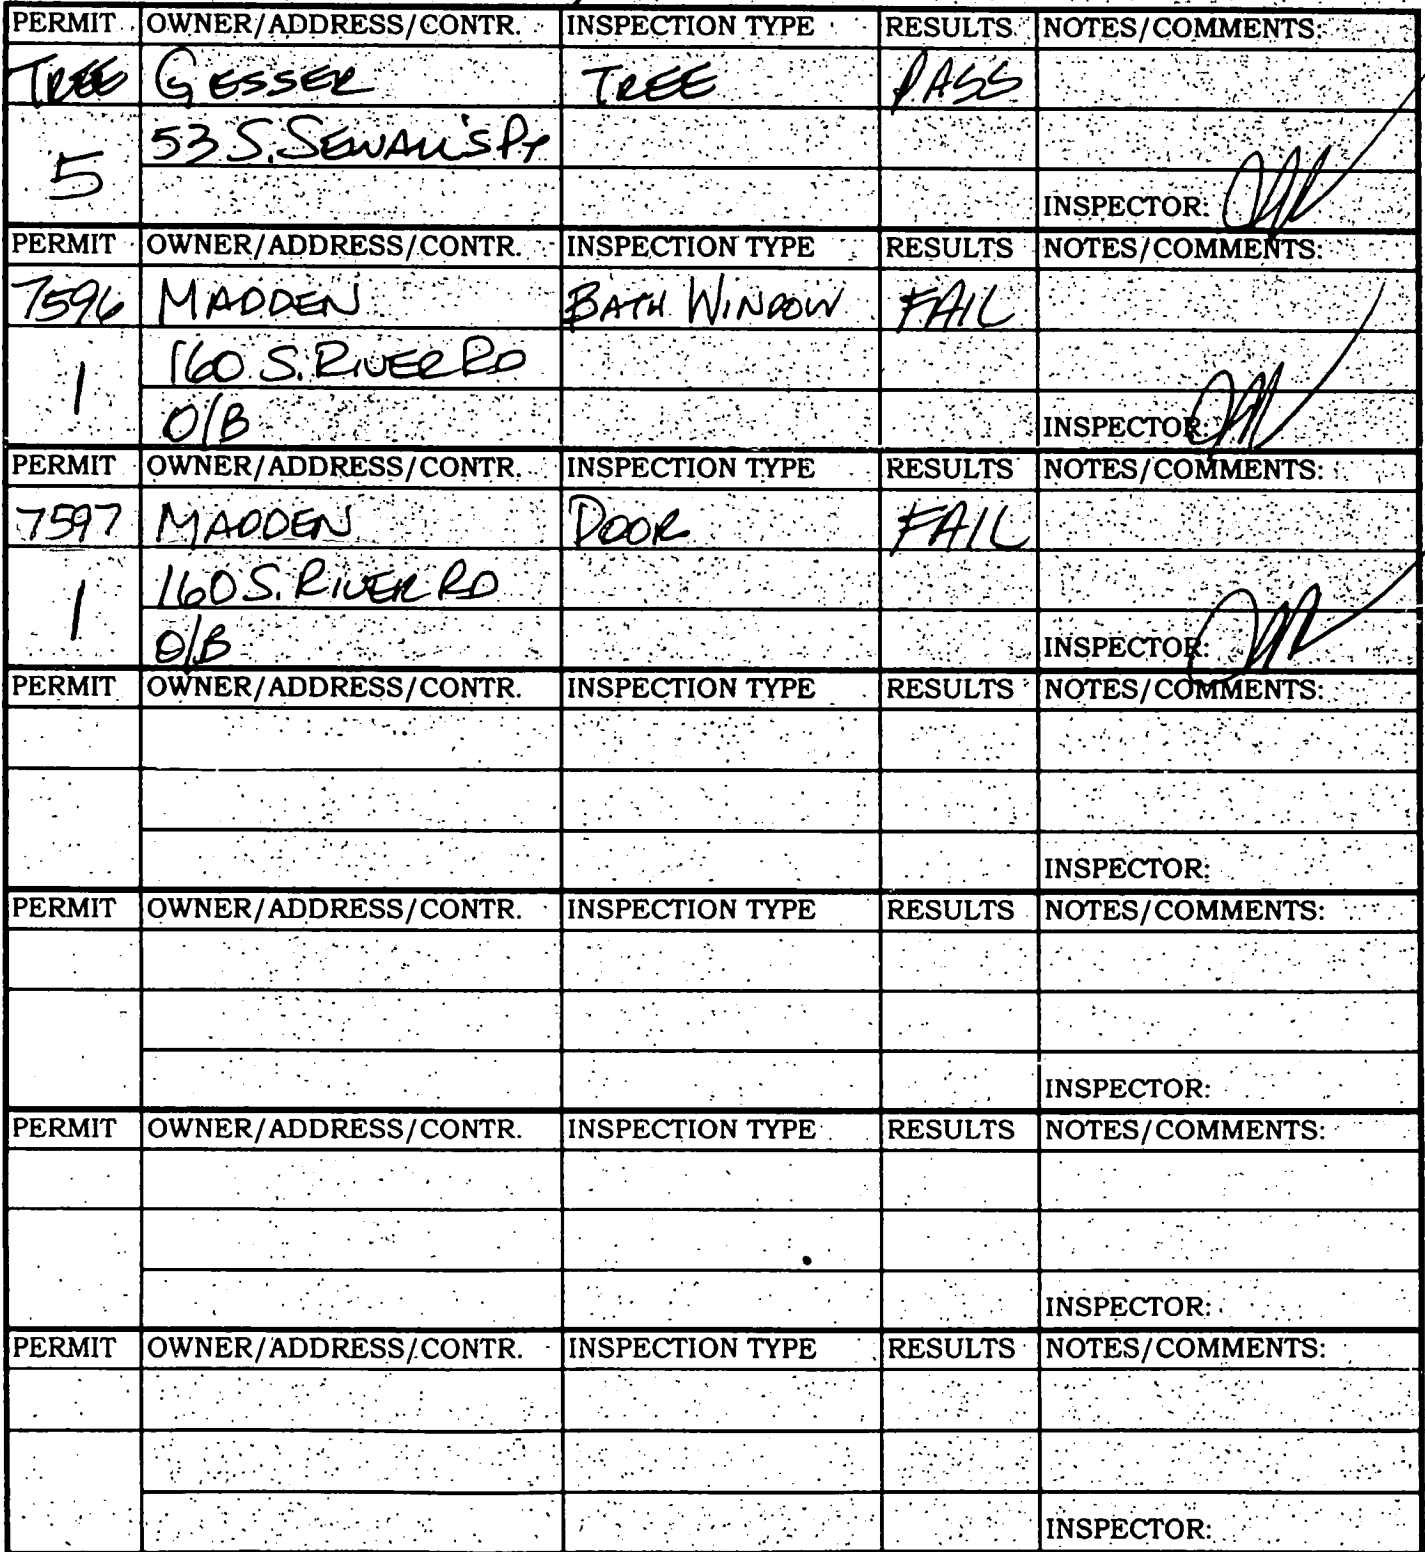 PERMIT OWNER/ADDRESS/CONTR. INSPECTION TYPE RESULTS NOTES/COMMENTS:
TREE GESSER TREE PASS
53 S. SEWALL'S PT
5
INSPECTOR:
PERMIT OWNER/ADDRESS/CONTR. INSPECTION TYPE RESULTS NOTES/COMMENTS:
7596 MADDEN BATH WINDOW FAIL
160 S. RIVER RD
1
O/B INSPECTOR:
PERMIT OWNER/ADDRESS/CONTR. INSPECTION TYPE RESULTS NOTES/COMMENTS:
7597 MADDEN DOOR FAIL
160 S. RIVER RD
1
O/B INSPECTOR:
PERMIT OWNER/ADDRESS/CONTR. INSPECTION TYPE RESULTS NOTES/COMMENTS:
INSPECTOR:
PERMIT OWNER/ADDRESS/CONTR. INSPECTION TYPE RESULTS NOTES/COMMENTS:
INSPECTOR:
PERMIT OWNER/ADDRESS/CONTR. INSPECTION TYPE RESULTS NOTES/COMMENTS:
INSPECTOR:
PERMIT OWNER/ADDRESS/CONTR. INSPECTION TYPE RESULTS NOTES/COMMENTS:
INSPECTOR: